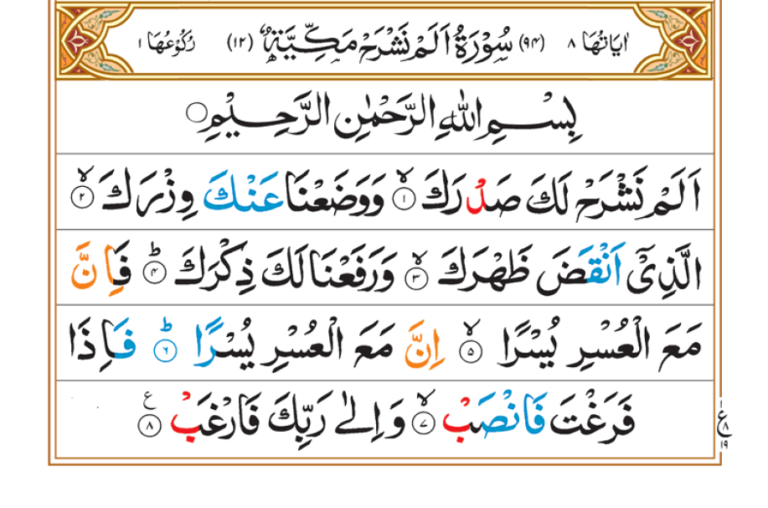 اٰیَاتُهَا ٨ (٩٤) سُوْرَةُ اَلَمْ نَشْرَحْ مَكِّیَّةٌ (١٢) رُكُوْعُهَا ١
بِسْمِ اللّٰهِ الرَّحْمٰنِ الرَّحِیْمِ
اَلَمْ نَشْرَحْ لَكَ صَدْرَكَ ۙ‏﴿١﴾ وَوَضَعْنَا عَنْكَ وِزْرَكَ ۙ‏﴿٢﴾
الَّذِیْۤ اَنْقَضَ ظَهْرَكَ ۙ‏﴿٣﴾ وَرَفَعْنَا لَكَ ذِكْرَكَ ؕ‏﴿٤﴾ فَاِنَّ
مَعَ الْعُسْرِ یُسْرًا ۙ‏﴿٥﴾ اِنَّ مَعَ الْعُسْرِ یُسْرًا ؕ‏﴿٦﴾ فَاِذَا
فَرَغْتَ فَانْصَبْ ۙ‏﴿٧﴾ وَاِلٰی رَبِّكَ فَارْغَبْ ﴿٨﴾ ع
١ ع ٨ ١٩